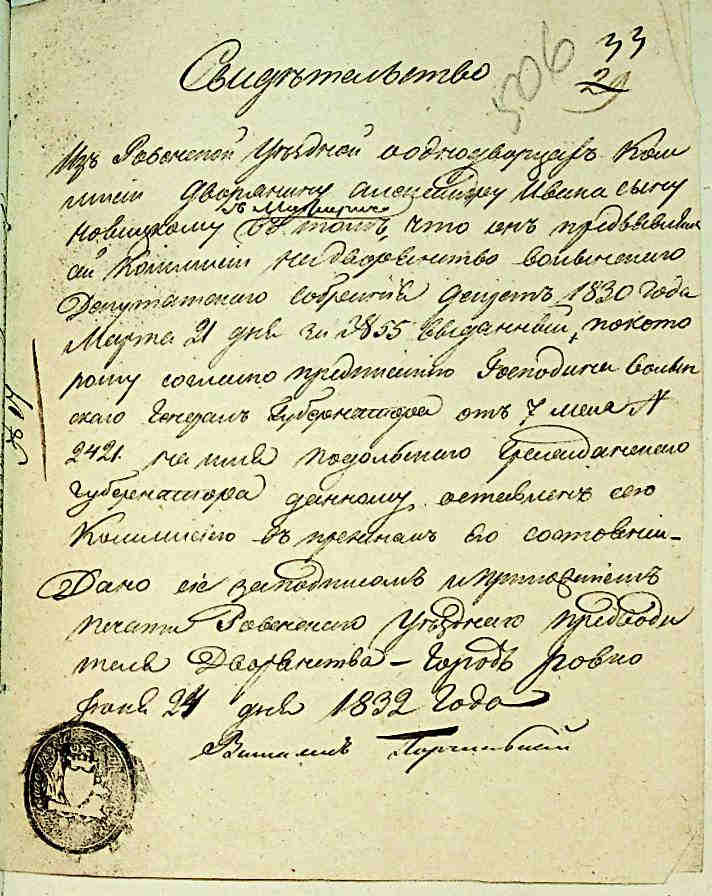 506
33
21
Свидѣтельство
Изъ Ровенской Уѣздной о однодворцахъ Ком
мисіи дворянину Александру Ивана сыну
Новицкому въ томъ, что онъ предъявлялъ
сей Коммисіи на дворянство Волынского
Депутатского Собранія 1830 года
Марта 21 дня за № 55 выданный, покото
рому согласно предписанію Господина Волын
ского Генералъ Губернатора отъ 7 мая №
2421. на имя Подольского Гражданского
Губернатора данному оставленъ сею
Коммисіею въ его состояніи
Дано сіе заподписомъ и приложеніемъ
печати Ровенского Уѣздного предводи
теля Дворянства – Городъ Ровно
Іюня 24 дня 1832 Года